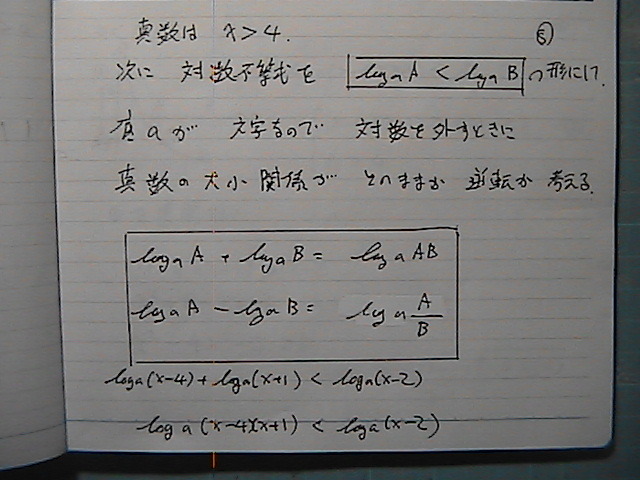 真数は x>4.
⑧
次に 対数不等式を log a A < log a B の形にして.
底aが 文字なので 対数を外すときに
真数の大小関係が そのままか 逆転か 考える.
log a A + log a B = log a AB
log a A - log a B = log a A/B
log a (x-4) + log a (x+1) < log a (x-2)
log a (x-4)(x+1) < log a (x-2)